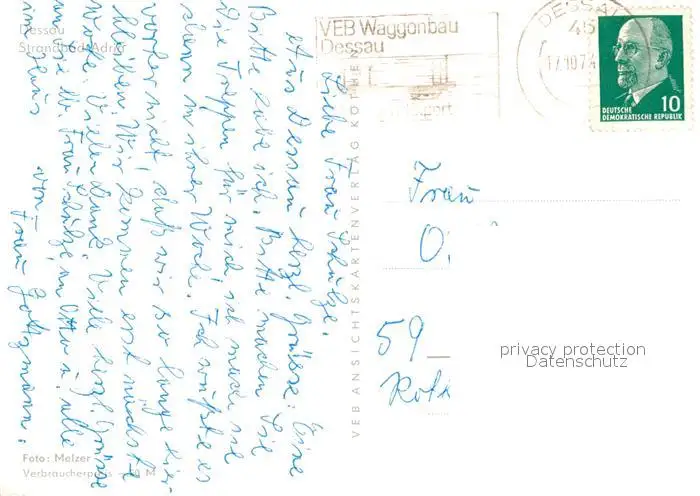 Dessau
Strandbad Adria
VEB Waggonbau
Dessau
DESSAU
45
17.10.74
DEUTSCHE
DEMOKRATISCHE REPUBLIK
10
Liebe Frau Schulze,
Aus Dessau herzl. Grüsse. Eine
Bitte habe ich. Bitte machen Sie
die Treppen für mich ich mach sie
dann in ihrer Woche. Ich wußte es
vorher nicht, daß wir so lange hier
bleiben. Wir kommen erst nächste
Woche. Vielen Dank. Viele herzl. Grüsse
an Sie lb. Frau Schulze, an Otto u. alle
im Haus
von
Frau
VEB ANSICHTSKARTENVERLAG KÖTHEN
Frau
O.
59
privacy protection
Datenschutz
Foto: Melzer
Verbraucherpreis
M